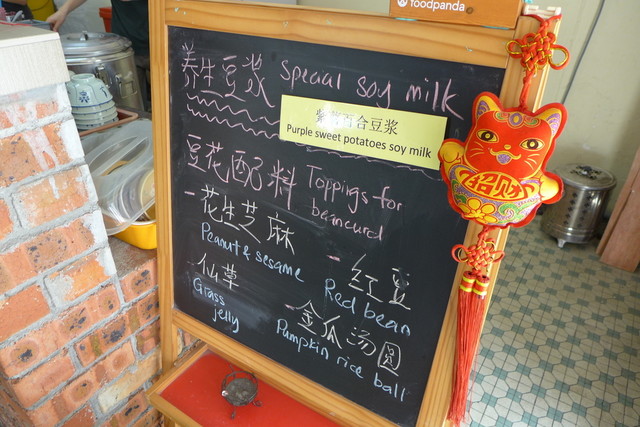 foodpanda
养生豆浆 Special soy milk
紫薯百合豆浆
Purple sweet potatoes soy milk
豆花配料 Toppings for
beancurd
- 花生芝麻
Peanut & sesame
- 红豆
Red bean
- 仙草
Grass
jelly
- 金瓜汤圆
Pumpkin rice ball
招财